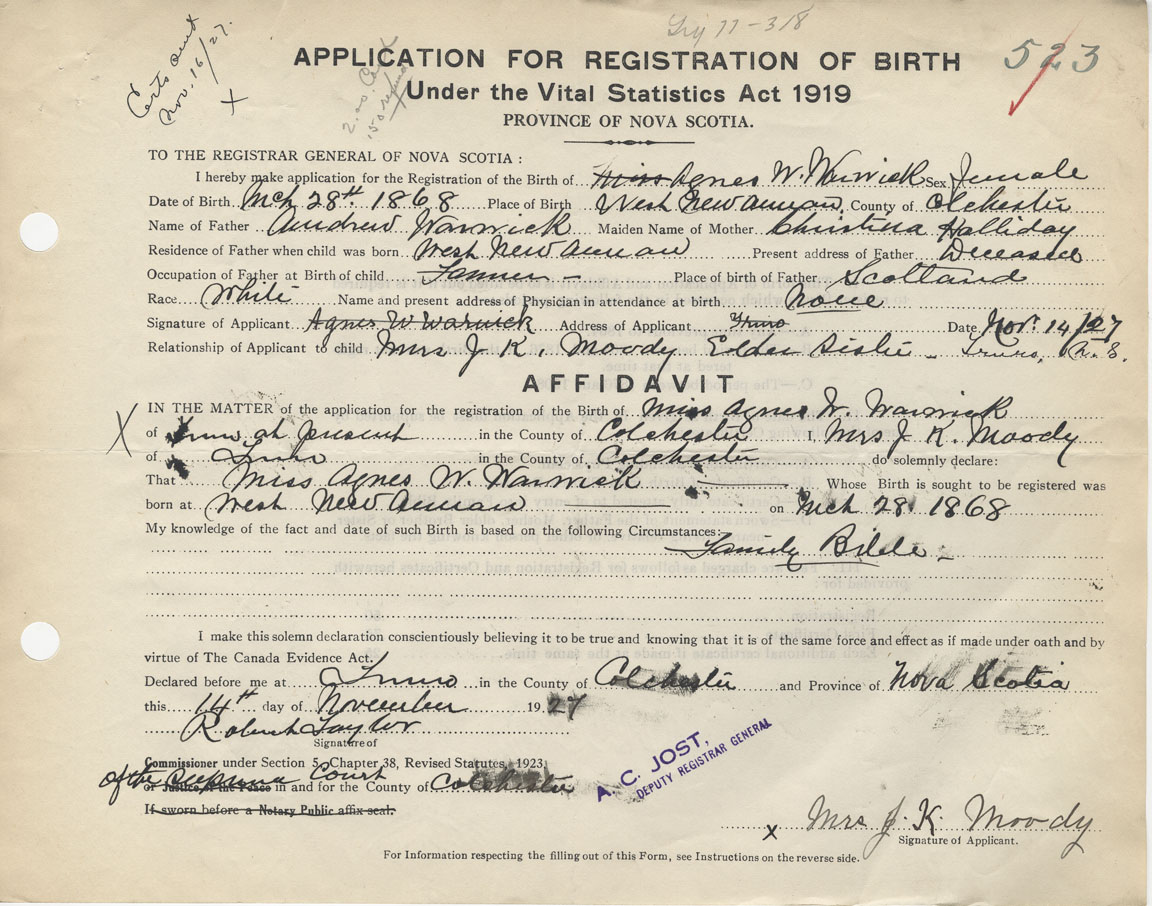 Certs sent
Nov. 16/27.
x
523
APPLICATION FOR REGISTRATION OF BIRTH
Under the Vital Statistics Act 1919
PROVINCE OF NOVA SCOTIA.
TO THE REGISTRAR GENERAL OF NOVA SCOTIA :
I hereby make application for the Registration of the Birth of Miss Agnes W. Warwick Sex Female
Date of Birth Mch 28th 1868 Place of Birth West New Annan, County of Colchester
Name of Father Andrew Warwick Maiden Name of Mother Christina Halliday
Residence of Father when child was born West New Annan Present address of Father Deceased
Occupation of Father at Birth of child Farmer - Place of birth of Father Scotland
Race White Name and present address of Physician in attendance at birth None
Signature of Applicant Agnes W Warwick Address of Applicant Truro Date Nov. 14/27
Relationship of Applicant to child Mrs J K. Moody Elder Sister - Truro, N. S.
AFFIDAVIT
X IN THE MATTER of the application for the registration of the Birth of Miss Agnes W. Warwick
of Truro at present in the County of Colchester I, Mrs J. K. Moody
of Truro in the County of Colchester do solemnly declare:
That Miss Agnes W. Warwick Whose Birth is sought to be registered was
born at West New Annan on Mch 28 1868
My knowledge of the fact and date of such Birth is based on the following Circumstances:
Family Bible -
I make this solemn declaration conscientiously believing it to be true and knowing that it is of the same force and effect as if made under oath and by
virtue of The Canada Evidence Act.
Declared before me at Truro in the County of Colchester and Province of Nova Scotia
this 14th day of November 1927
Robert Taylor
Signature of
Commissioner under Section 5, Chapter 38, Revised Statutes, 1923
of the Supreme Court
or Justice of the Peace in and for the County of Colchester
If sworn before a Notary Public affix seal.
A. C. JOST,
DEPUTY REGISTRAR GENERAL
x Mrs J. K. Moody
Signature of Applicant.
For Information respecting the filling out of this Form, see Instructions on the reverse side.